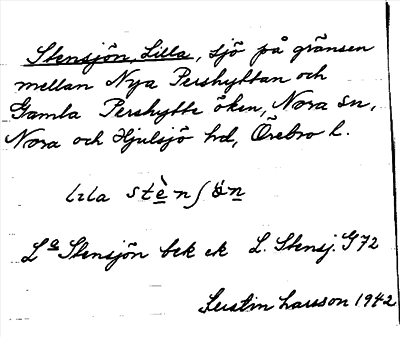 Stensjön, Lilla, sjö på gränsen
mellan Nya Pershyttan och
Gamla Pershytte öken, Nora sn,
Nora och Hjulsjö hd, Örebro l.
lɪla stè̱nʃö́n̲
La Stensjön bek ek L. Stensj. G72
Kerstin Larsson 1942